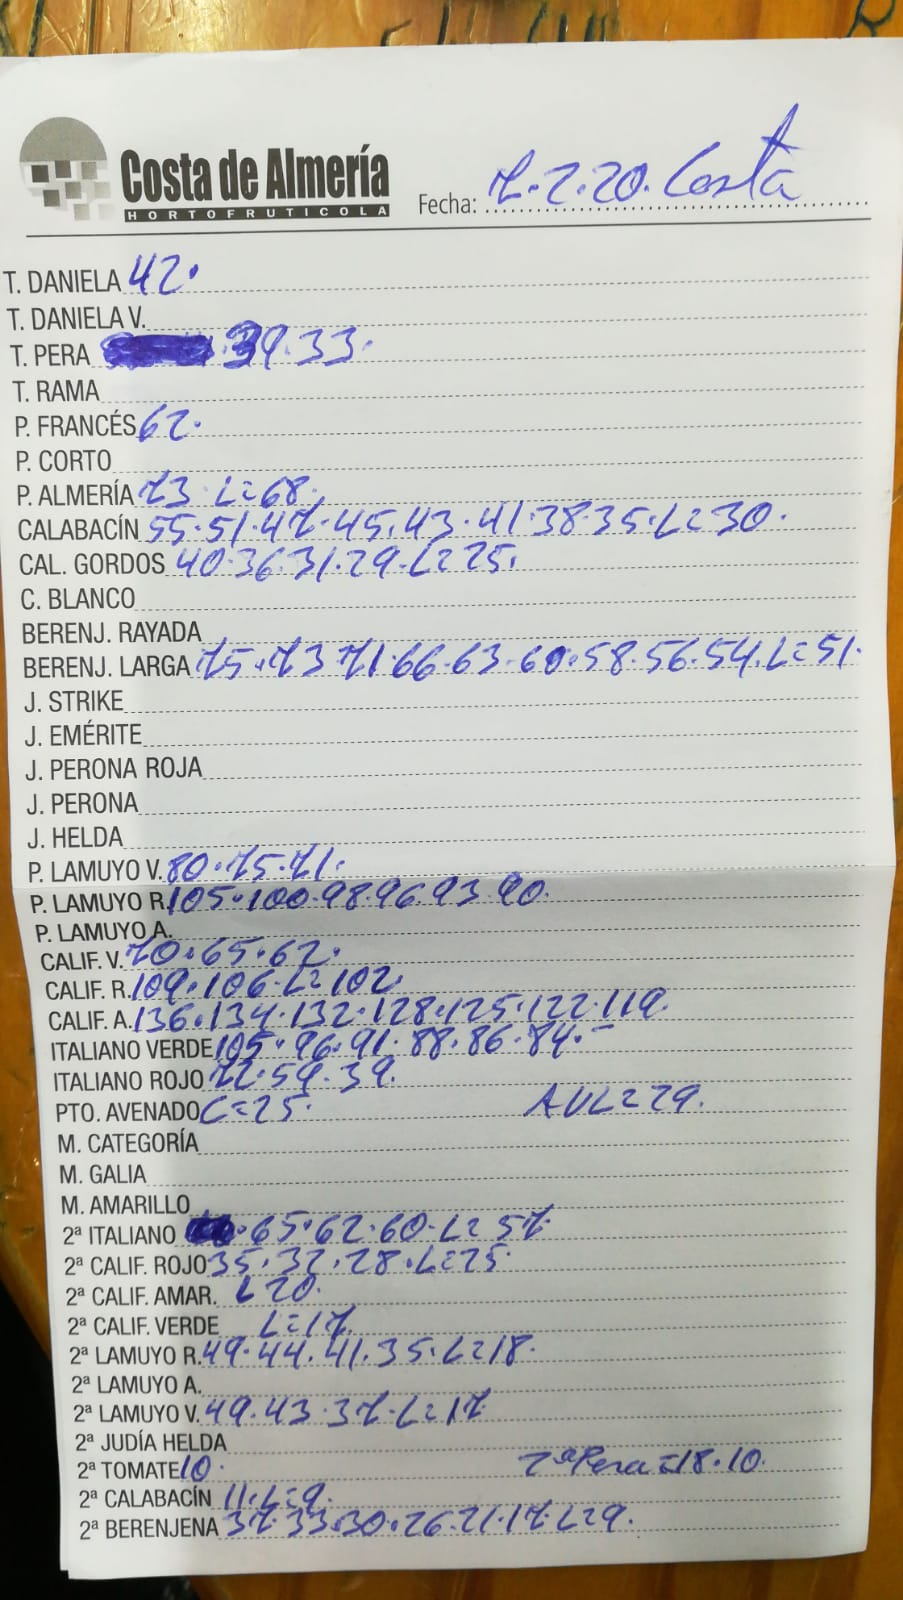 Costa de Almería
HORTOFRUTICOLA
Fecha: 7.2.20. Costa
T. DANIELA 42.
T. DANIELA V.
T. PERA .39.33.
T. RAMA
P. FRANCÉS 62.
P. CORTO
P. ALMERÍA 73. L=68.
CALABACÍN 55.51.47.45.43.41.38.35.L=30.
CAL. GORDOS 40.36.31.29.L=25.
C. BLANCO
BERENJ. RAYADA
BERENJ. LARGA 75.73.71.66.63.60.58.56.54.L=51.
J. STRIKE
J. EMÉRITE
J. PERONA ROJA
J. PERONA
J. HELDA
P. LAMUYO V. 80.75.71.
P. LAMUYO R. 105.100.98.96.93.90.
P. LAMUYO A.
CALIF. V. 70.65.62.
CALIF. R. 109.106.L=102.
CALIF. A. 136.134.132.128.125.122.119.
ITALIANO VERDE 105.96.91.88.86.84.-
ITALIANO ROJO 72.59.39.
PTO. AVENADO C=25. AVL=29.
M. CATEGORÍA
M. GALIA
M. AMARILLO
2ª ITALIANO .65.62.60.L=57
2ª CALIF. ROJO 35.32.28.L=25.
2ª CALIF. AMAR. L 20.
2ª CALIF. VERDE L=17.
2ª LAMUYO R. 49.44.41.35.L=18.
2ª LAMUYO A.
2ª LAMUYO V. 49.43.37.L=17
2ª JUDÍA HELDA
2ª TOMATE 10. 2ª Pera=18.10.
2ª CALABACÍN 11.L=9.
2ª BERENJENA 37.33.30.26.21.17.L=9.